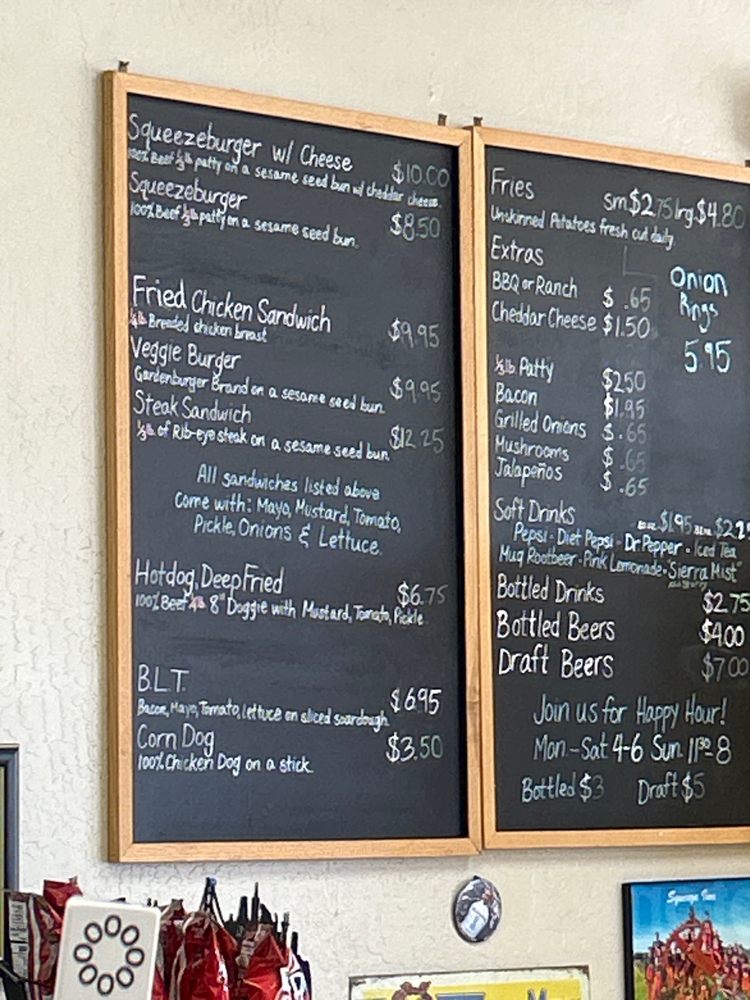 Squeezeburger w/ Cheese $10.00
100% Beef ⅓lb patty on a sesame seed bun w/ cheddar cheese
Squeezeburger $8.50
100% Beef ⅓lb patty on a sesame seed bun.
Fried Chicken Sandwich $9.95
Breaded chicken breast
Veggie Burger $9.95
Gardenburger Brand on a sesame seed bun.
Steak Sandwich $12.25
⅓lb. of Rib-eye steak on a sesame seed bun.
All sandwiches listed above
come with: Mayo, Mustard, Tomato,
Pickle, Onions & Lettuce.
Hotdog, Deep Fried $6.75
100% Beef 8" Doggie with Mustard, Tomato, Pickle
B.L.T. $6.95
Bacon, Mayo, Tomato, lettuce on sliced sourdough.
Corn Dog $3.50
100% Chicken Dog on a stick.
Fries sm.$2.75 lrg.$4.80
Unskinned Potatoes fresh cut daily.
Extras
BBQ or Ranch $ .65
Cheddar Cheese $1.50
Onion
Rings
5.95
⅓lb Patty $2.50
Bacon $1.95
Grilled Onions $ .65
Mushrooms $ .65
Jalapeños $ .65
Soft Drinks $1.95
Pepsi - Diet Pepsi - Dr Pepper - Iced Tea
Mug Rootbeer - Pink Lemonade - Sierra Mist
Bottled Drinks $2.75
Bottled Beers $4.00
Draft Beers $7.00
Join us for Happy Hour!
Mon-Sat 4-6 Sun 11³⁰-8
Bottled $3 Draft $5
Squeeze Inn